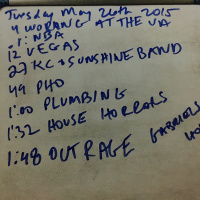 Tuesday May 26th 2015
4 WORKING AT THE VA
-1: NBA
12 VEGAS
27 KC + SUNSHINE BAND
49 PHO
1:00 PLUMBING
1:32 HOUSE HORRORS
1:48 OUTRAGE GABRIELS